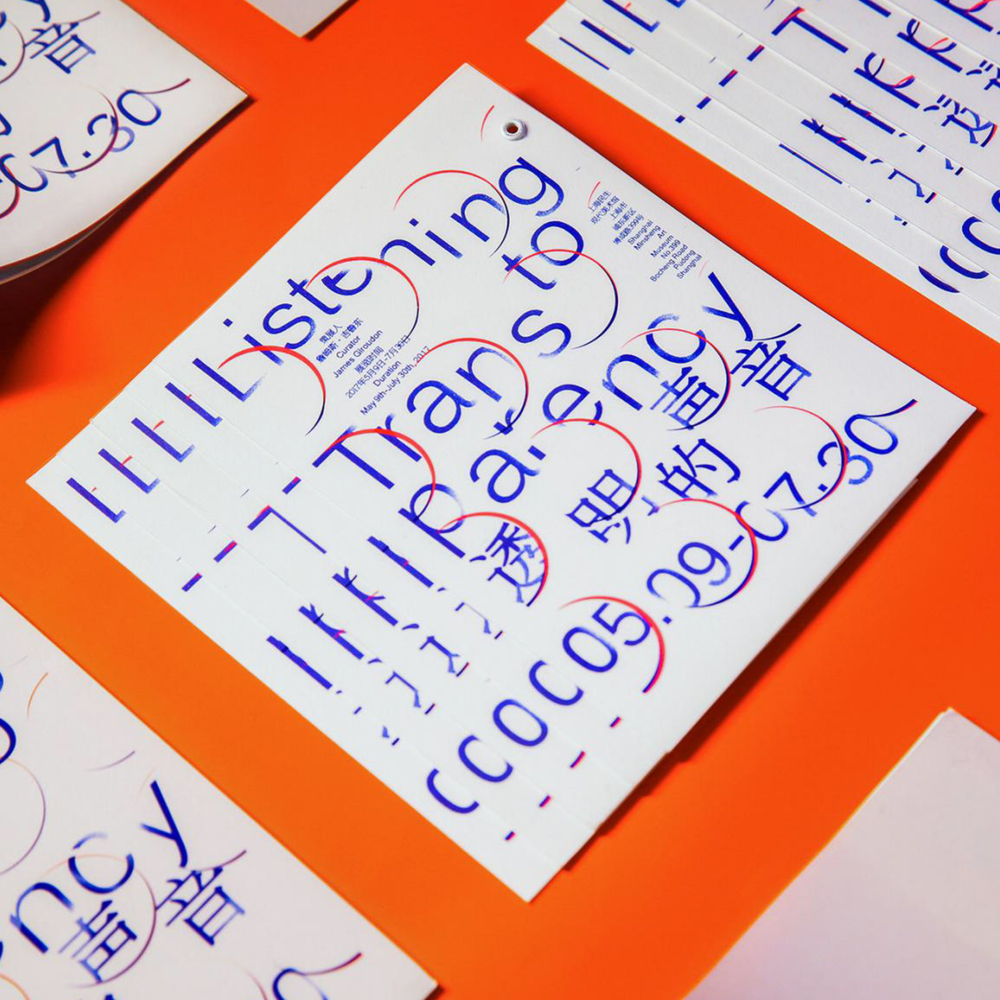 Listening
to
上海民生
现代美术馆
上海市
浦东新区
博成路399号
Shanghai
Minsheng
Art
Museum
No 399
Bocheng Road
Pudong
Shanghai
策展人
詹姆斯·吉鲁乐
Curator
James Giroudon
展览时间
2017年5月9日-7月30日
Duration
May 9th-July 30th, 2017
Trans
parency
透明的
声音
05.09-07.30
ncy
声音
音
07.30